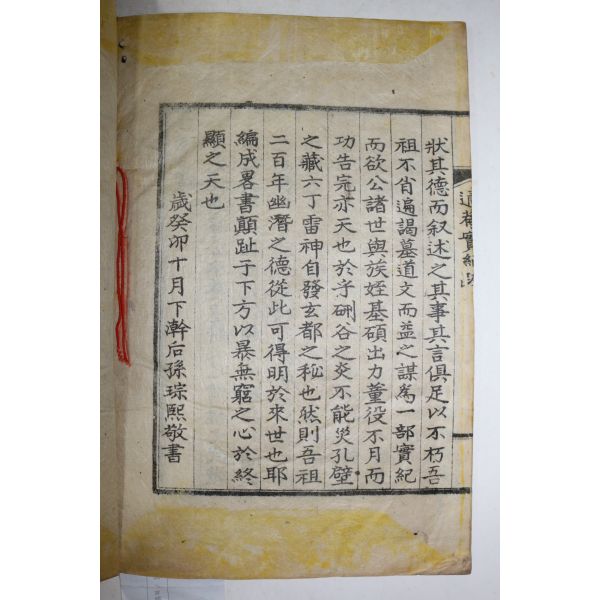 狀其德而叙述之其事其言俱足以不朽吾
祖不省遍謁墓道文而益之謀爲一部實紀
而欲公諸世與族姪基碩出力董役不月而
功告完亦天也於乎硎谷之炎不能災孔壁
之藏六丁雷神自發玄都之秘也然則吾祖
二百年幽潛之德從此可得明於來世也耶
編成畧書顛趾于下方以暴無窮之心於終
顯之天也
歲癸卯十月下澣后孫琮熙敬書
實紀